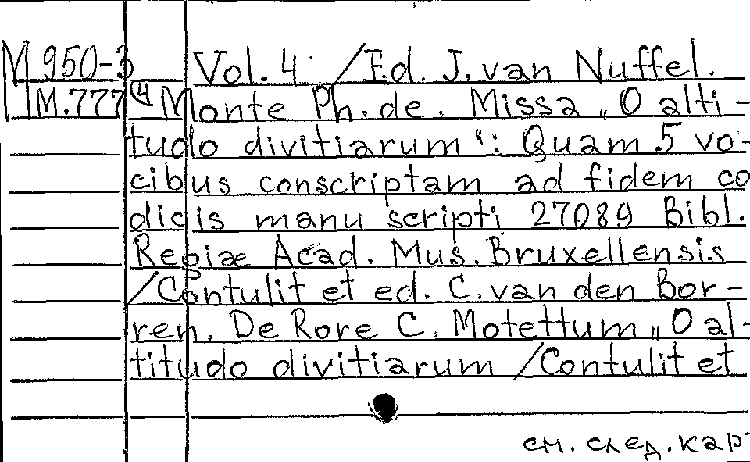 М 950-3 Vol. 4 / Ed. J. van Nuffel.
М.777(4) Monte Ph. de. Missa „O alti-
tudo divitiarum“: Quam 5 vo-
cibus conscriptam ad fidem co
dicis manu scripti 27089 Bibl.
Regiæ Acad. Mus. Bruxellensis
/Contulit et ed. C. van den Bor-
ren. De Rore C. Motettum „O al-
titudo divitiarum /Contulit et
см. след. кар